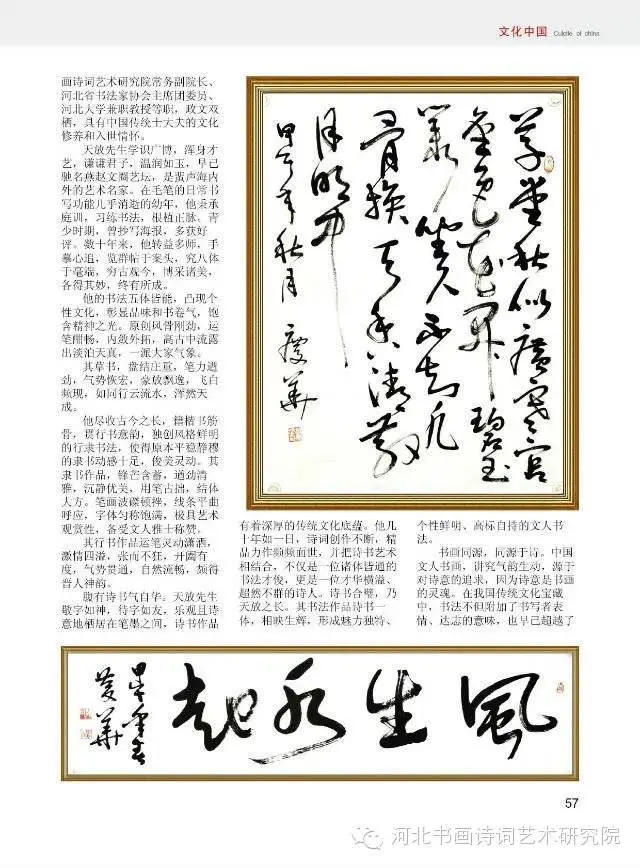 文化中国 Cultile of china
画诗词艺术研究院常务副院长、
河北省书法家协会主席团委员、
河北大学兼职教授等职，政文双
栖，具有中国传统士大夫的文化
修养和入世情怀。
天放先生学识广博，浑身才
艺，谦谦君子，温润如玉，早已
驰名燕赵文圈艺坛，是蜚声海内
外的艺术名家。在毛笔的日常书
写功能几乎消逝的幼年，他秉承
庭训，习练书法，根植正脉。青
少时期，曾抄写海报，多获好
评。数十年来，他转益多师，手
摹心追，览群帖于案头，究八体
于毫端，穷古观今，博采诸美，
各得其妙，终有所成。
他的书法五体皆能，凸现个
性文化，彰显品味和书卷气，饱
含精神之光。原创风骨刚劲，运
笔酣畅，内敛外拓，高古中流露
出淡泊天真，一派大家气象。
其草书，盘结庄重，笔力遒
劲，气势恢宏，豪放飘逸，飞白
频现，如同行云流水，浑然天
成。
他尽收古今之长，籍楷书筋
骨，贯行书意韵，独创风格鲜明
的行隶书法，使得原本平稳静穆
的隶书动感十足，俊美灵动。其
隶书作品，锋芒含蓄，遒劲清
雅，沉静优美，用笔古拙，结体
大方。笔画波磔顿挫，线条平曲
呼应，字体匀称饱满，极具艺术
观赏性，备受文人雅士称赞。
其行书作品运笔灵动潇洒，
激情四溢，张而不狂，开阖有
度，气势贯通，自然流畅，颇得
晋人神韵。
腹有诗书气自华。天放先生
敬字如神，待字如友，乐观且诗
意地栖居在笔墨之间，诗书作品
草堂秋似廣寒宮
金色花开碧玉
叢坐久不知凡
骨换天香清散
月明中
甲午年秋月
有着深厚的传统文化底蕴。他几
十年如一日，诗词创作不断，精
品力作频频面世，并把诗书艺术
相结合，不仅是一位诸体皆通的
书法才俊，更是一位才华横溢、
超然不群的诗人。诗书合璧，乃
天放之长。其书法作品诗书一
体，相映生辉，形成魅力独特、
个性鲜明、高标自持的文人书
法。
书画同源，同源于诗。中国
文人书画，讲究气韵生动，源于
对诗意的追求，因为诗意是书画
的灵魂。在我国传统文化宝藏
中，书法不但附加了书写者表
情、达志的意味，也早已超越了
風生水起
57
河北书画诗词艺术研究院